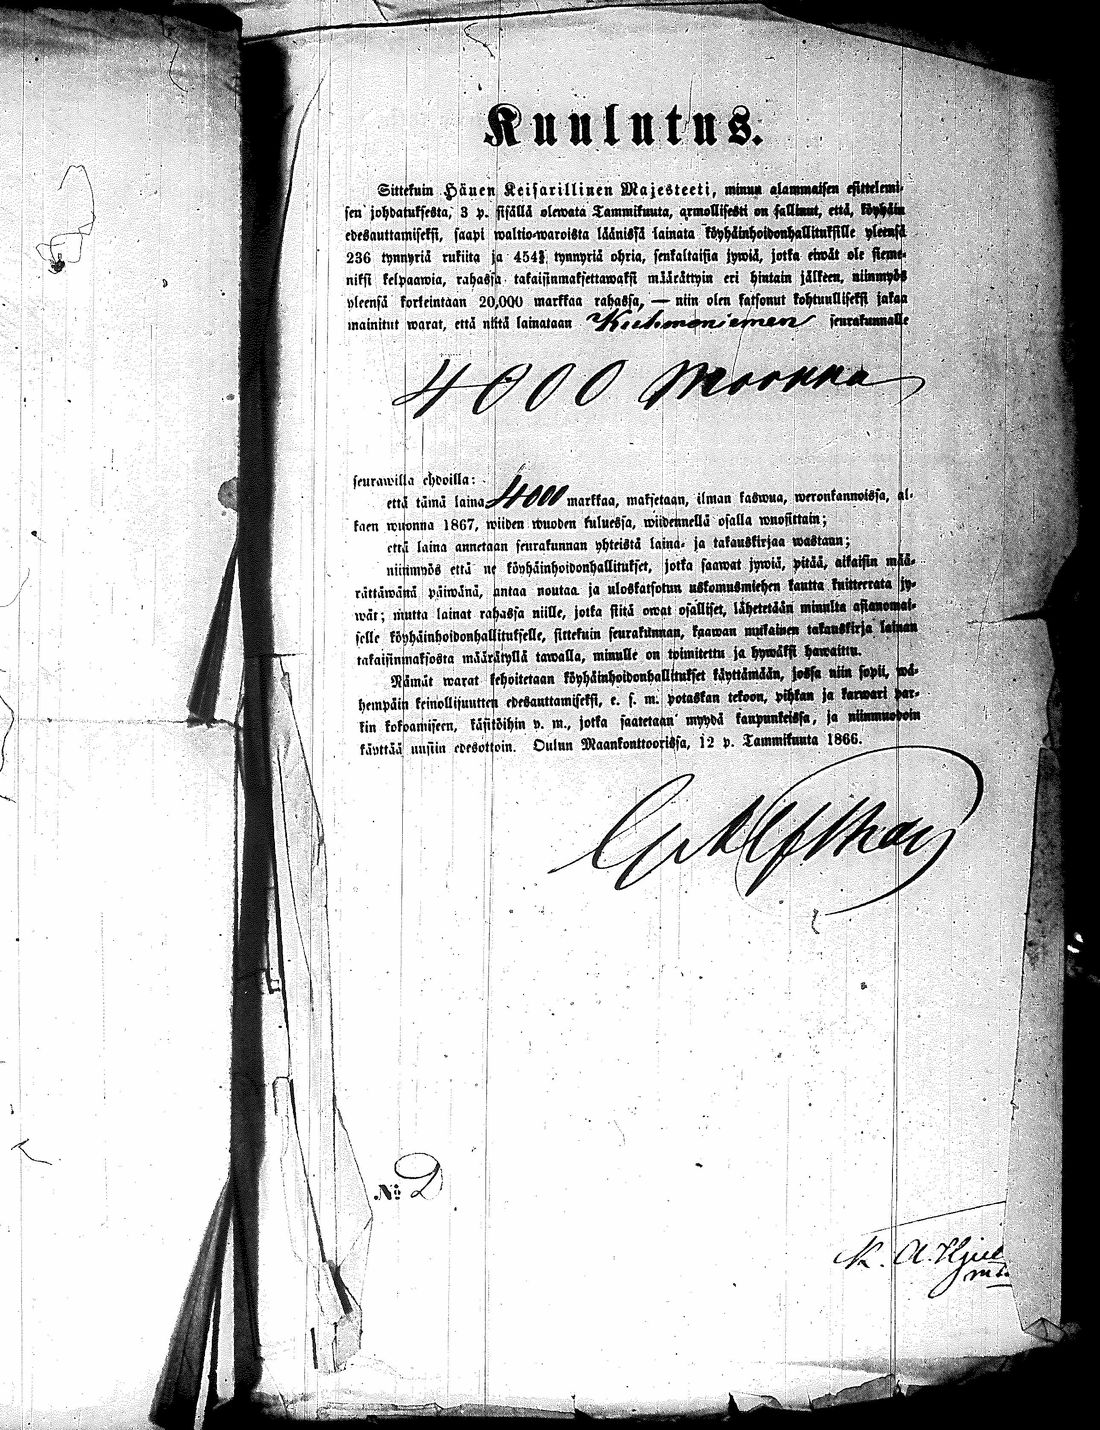 Kuulutus.
Sittekuin Hänen Keisarillinen Majesteeti, minun alammaisen esittelemi-
sen johdatuksesta, 3 p. sisällä olewata Tammikuuta, armollisesti on sallinut, että, köyhäin
edesauttamiseksi, saapi waltio-waroista läänissä lainata köyhäinhoidonhallituksille yleensä
236 tynnyriä rukiita ja 454½ tynnyriä ohria, senkaltaisia jywiä, jotka eiwät ole sieme-
niksi kelpaawia, rahassa takaisinmaksettawaksi määrättyin eri hintain jälkeen, niinmyös
yleensä korkeintaan 20,000 markkaa rahassa, — niin olen katsonut kohtuulliseksi jakaa
mainitut warat, että niitä lainataan Kiehmaniemen seurakunnalle
4000 Markkaa
seurawilla ehdoilla:
että tämä laina 4000 markkaa, maksetaan, ilman kaswua, weronkannoissa, al-
kaen wuonna 1867, wiiden wuoden kuluessa, wiidennellä osalla wuosittain;
että laina annetaan seurakunnan yhteistä laina- ja takauskirjaa wastaan;
niinmyös että ne köyhäinhoidonhallitukset, jotka saawat jywiä, pitää, aikaisin mää-
rättäwänä päiwänä, antaa noutaa ja uloskatsotun uskomusmiehen kautta kuitterrata jy-
wät; mutta lainat rahassa niille, jotka siitä owat osalliset, lähetetään minulta asianomai-
selle köyhäinhoidonhallitukselle, sittekuin seurakunnan, kaawan mukainen takauskirja lainan
takaisinmaksosta määrätyllä tawalla, minulle on toimitettu ja hywäksi hawaittu.
Nämät warat kehoitetaan köyhäinhoidonhallitukset käyttämään, jossa niin sopii, wä-
hempäin keinollisuutten edesauttamiseksi, e. s. m. potaskan tekoon, pihkan ja karwari par-
kin kokoamiseen, käsitöihin y. m., jotka saatetaan myydä kaupunkeissa, ja niinmuodoin
käyttää uusiin edesottoin. Oulun Maankonttoorissa, 12 p. Tammikuuta 1866.
№ 2